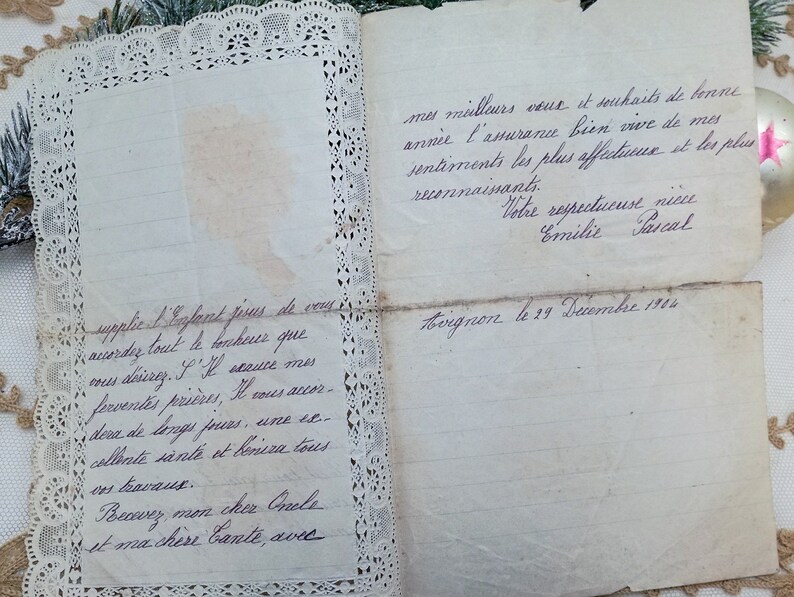 supplie l'Enfant jésus de vous
accordez tout le bonheur que
vous désirez. S'Il exauce mes
ferventes prières, Il vous accor-
dera de longs jours, une ex-
cellente santé et bénira tous
vos travaux.
Recevez, mon cher Oncle
et ma chère Tante, avec
mes meilleurs vœux et souhaits de bonne
année l'assurance bien vive de mes
sentiments les plus affectueux et les plus
reconnaissants.
Votre respectueuse nièce
Emilie Pascal
Avignon le 29 Décembre 1904